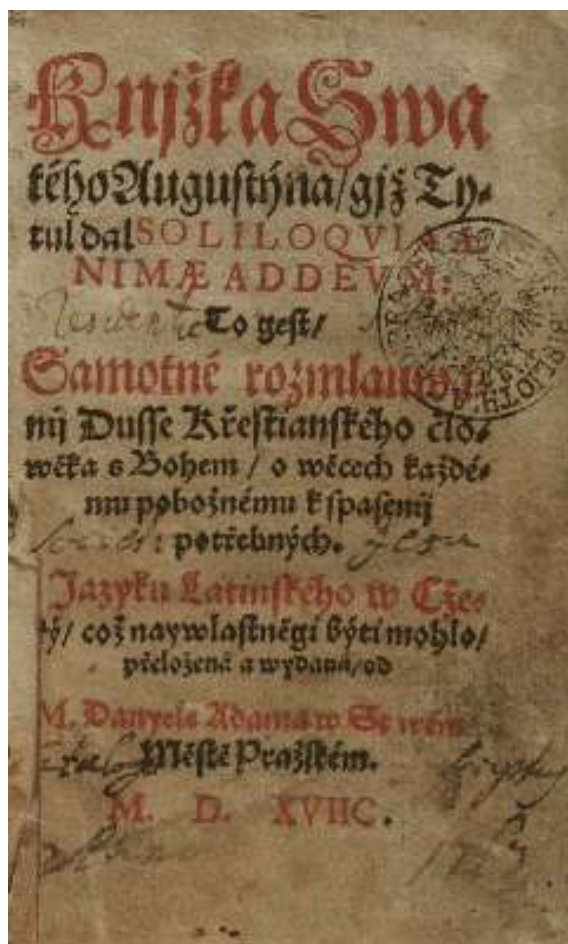 Knjžka Swa
tého Augustýna/ gjž Ty⸗
tul dal SOLILOQVIA A
NIMÆ AD DEVM:
To gest/
Samotné rozmlauwá
nij Dusse Křestianského člo⸗
wěka s Bohem / o wěcech každé⸗
mu pobožnému k spasenij
potřebných.
Jazyku Latinského w Cžes
ký/ což naywlastněgi býti mohlo/
přeložená a wydaná/ od
M. Danyele Adama w Starém
Městě Pražském.
M. D. XVIIC.